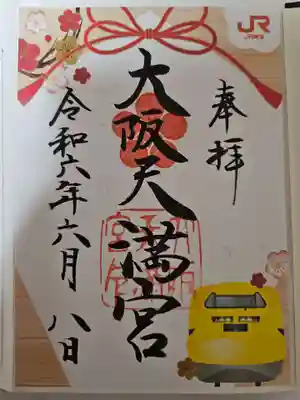 JR
奉拝
大阪天満宮
令和六年六月八日